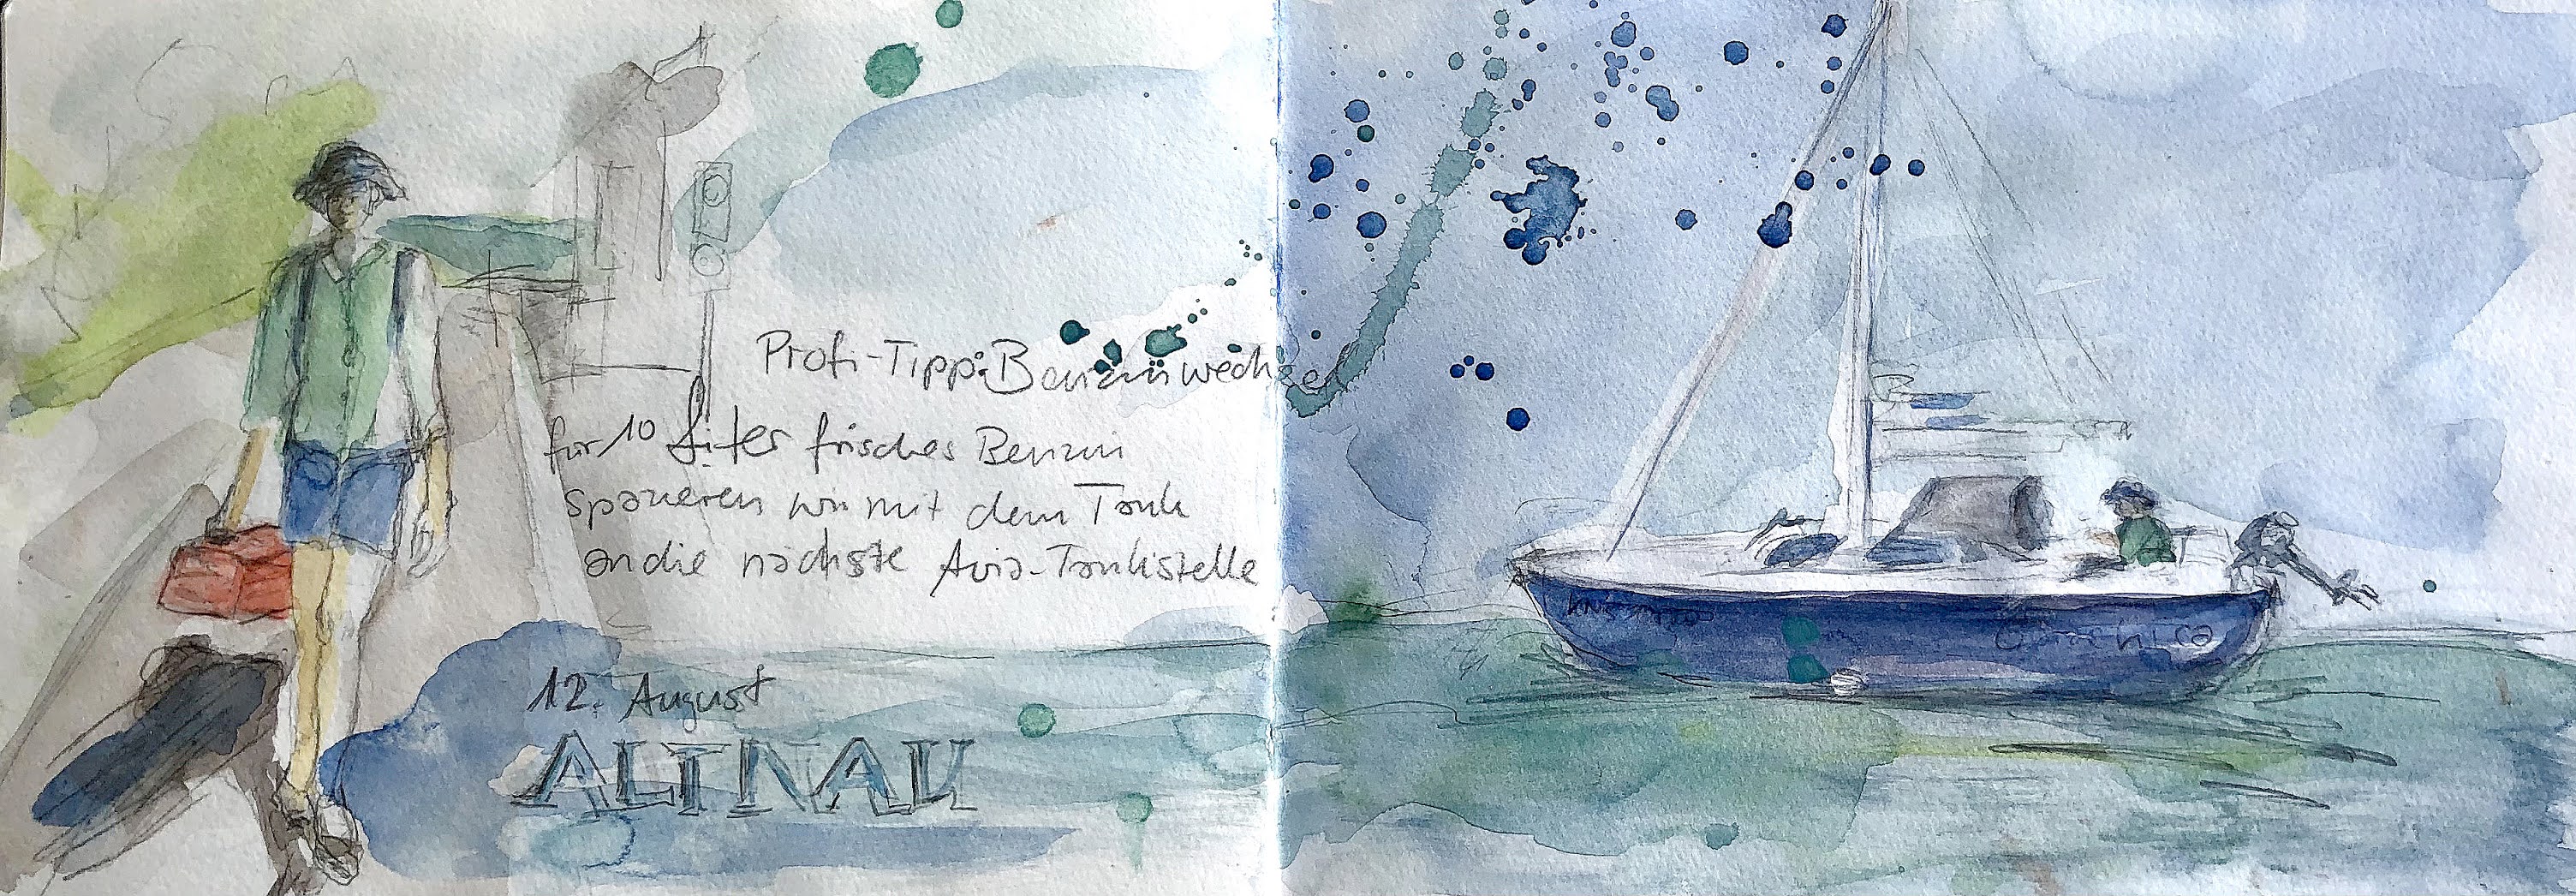 Profi-Tipp: Benzinwechsel
für 10 Liter frisches Benzin
spazieren wir mit dem Tank
an die nächste Avia-Tankstelle
12. August
ALTNAU